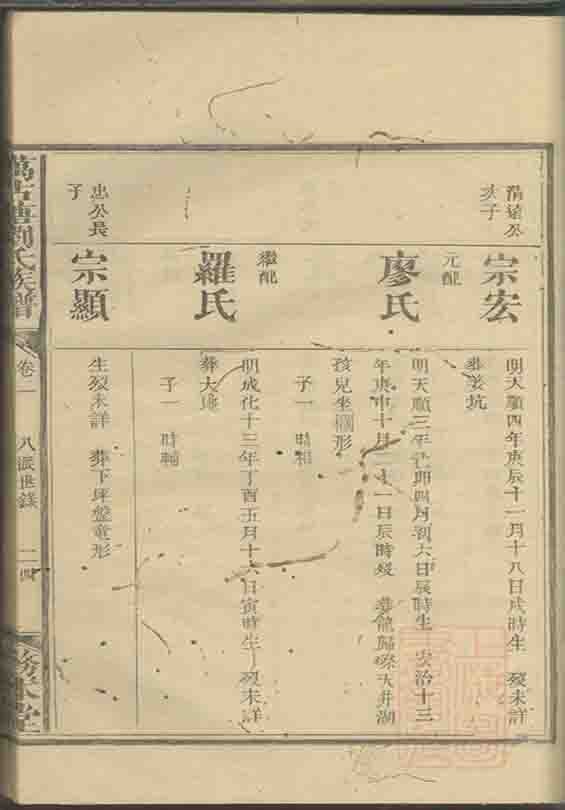 清遠公
次子
宗宏
明天順四年庚辰十一月十八日戌時生 歿未詳
葬姜坑
元配
廖氏
明天順三年己卯四月初六日辰時生 宏治十三
年庚申十月二十一日辰時歿 葬龍歸寨天井湖
孩兒坐欄形
子一 時相
繼配
羅氏
明成化十三年丁酉五月十六日寅時生 歿未詳
葬大
子一 時輔
忠公長
子
宗顯
生歿未詳 葬下坪盤龍形
萬古塘劉氏族譜
卷二
八派世錄
二四